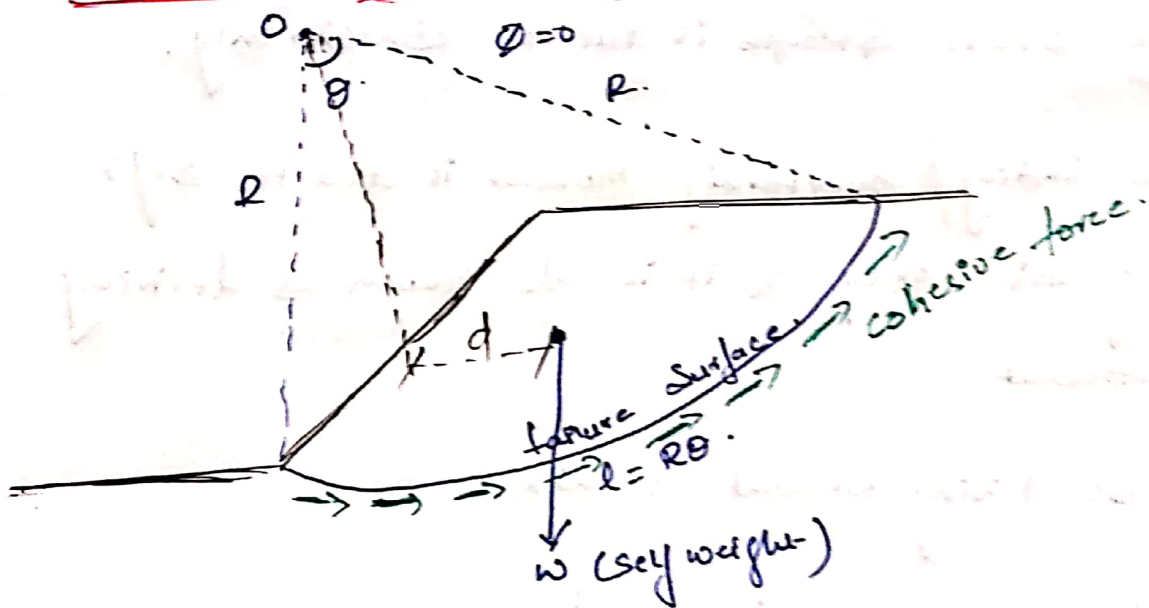 O
φ=0
θ
R.
R
d
failure Surface.
cohesive force.
l = Rθ.
W (self weight)